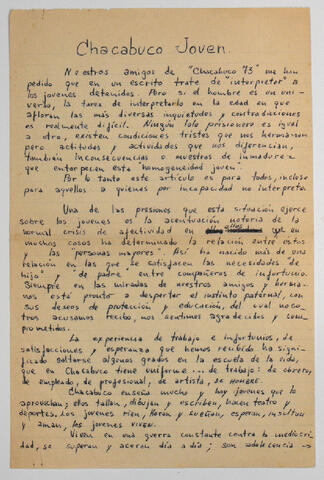 Chacabuco Joven.
Nuestros amigos de "Chacabuco 73" me han
pedido que en un escrito trate de "interpretar" a
los jovenes detenidos. Pero si el hombre es un uni-
verso, la tarea de interpretarlo en la edad en que
afloran las más diversas inquietudes y contradicciones
es realmente difícil. Ningún lolo prisionero es igual
a otro, existen condiciones tristes que nos hermanan
pero actitudes y actividades que nos diferencian,
también inconsecuencias o muestras de inmadurez
que entorpecen esta "homogeneidad joven".
Por lo tanto este artículo es para todos, incluso
para aquellos a quienes por incapacidad no interpreto.
Una de las presiones que esta situación ejerce
sobre los jovenes es la acentuación notoria de la
normal crisis de afectividad en ellos que en
muchos casos ha determinado la relación entre estos
y las personas mayores". Así ha nacido más de una
relación en las que se satisfacen las necesidades de
hijo" y "de padre" entre compañeros de infortunio.
Siempre en las miradas de nuestros amigos y herma-
nos está pronto a despertar el instinto paternal, con
sus deseos de protección y educación, del cual noso-
tros acusamos recibo, nos sentimos agradecidos y com-
prometidos.
La experiencia de trabajo e infortunios, de
satisfacciones y esperanza que hemos recibido ha signi-
ficado saltarse algunos grados en la escuela de la vida,
que en Chacabuco tiene uniforme... de trabajo: de obrero,
de empleado, de profesional, de artista, DE HOMBRE.
Chacabuco enseña mucho y hay jovenes que lo
aprovechan; ellos tallan, dibujan y escriben, hacen teatro y
deportes. Los jovenes rien, lloran y sueñan, esperan, insultan
y aman, los jovenes viven.
Viven en una guerra constante contra la mediocri-
dad, se superan y aceran día a día; son adolescencia →